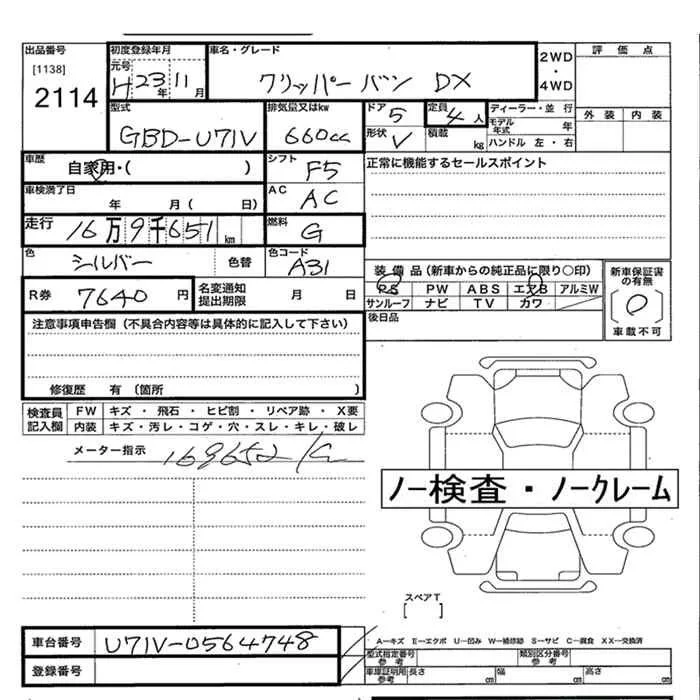 出品番号 初度登録年月 車名・グレード 2WD ・ 4WD 評価点
[1138] 元号
2114 H 23年 11月 クリッパー バン DX
型式 排気量又はkw ドア 5 定員 4人 ディーラー・並行 外装 内装
GBD-U71V 660cc 形状 V 積載 kg モデル年式 年
ハンドル 左・右
車歴 自家用・( ) シフト F5 正常に機能するセールスポイント
車検満了日 年 月( 日) AC AC
走行 16万9千651km 燃料 G
色 シルバー 色替 色コード A31
装備品(新車からの純正品に限り○印) 新車保証書の有無
R券 7640円 名変通知提出期限 月 日 PS PW ABS エアB アルミW
サンルーフ ナビ TV カワ
〔 〕
車載不可
注意事項申告欄(不具合内容等は具体的に記入して下さい) 後日品
修復歴 有〔箇所 〕
検査員記入欄 FW キズ・飛石・ヒビ割・リペア跡・X要
内装 キズ・汚レ・コゲ・穴・スレ・キレ・破レ
メーター指示 169652
ノー検査・ノークレーム
スペアT
[ ]
車台番号 U71V-0564748
登録番号
A―キズ E―エクボ U―凹み W―補修跡 S―サビ C―腐食 XX―交換済
型式指定番号 参考 類別区分番号 参考
車庫証明用 参考 長さ cm 幅 cm 高さ cm